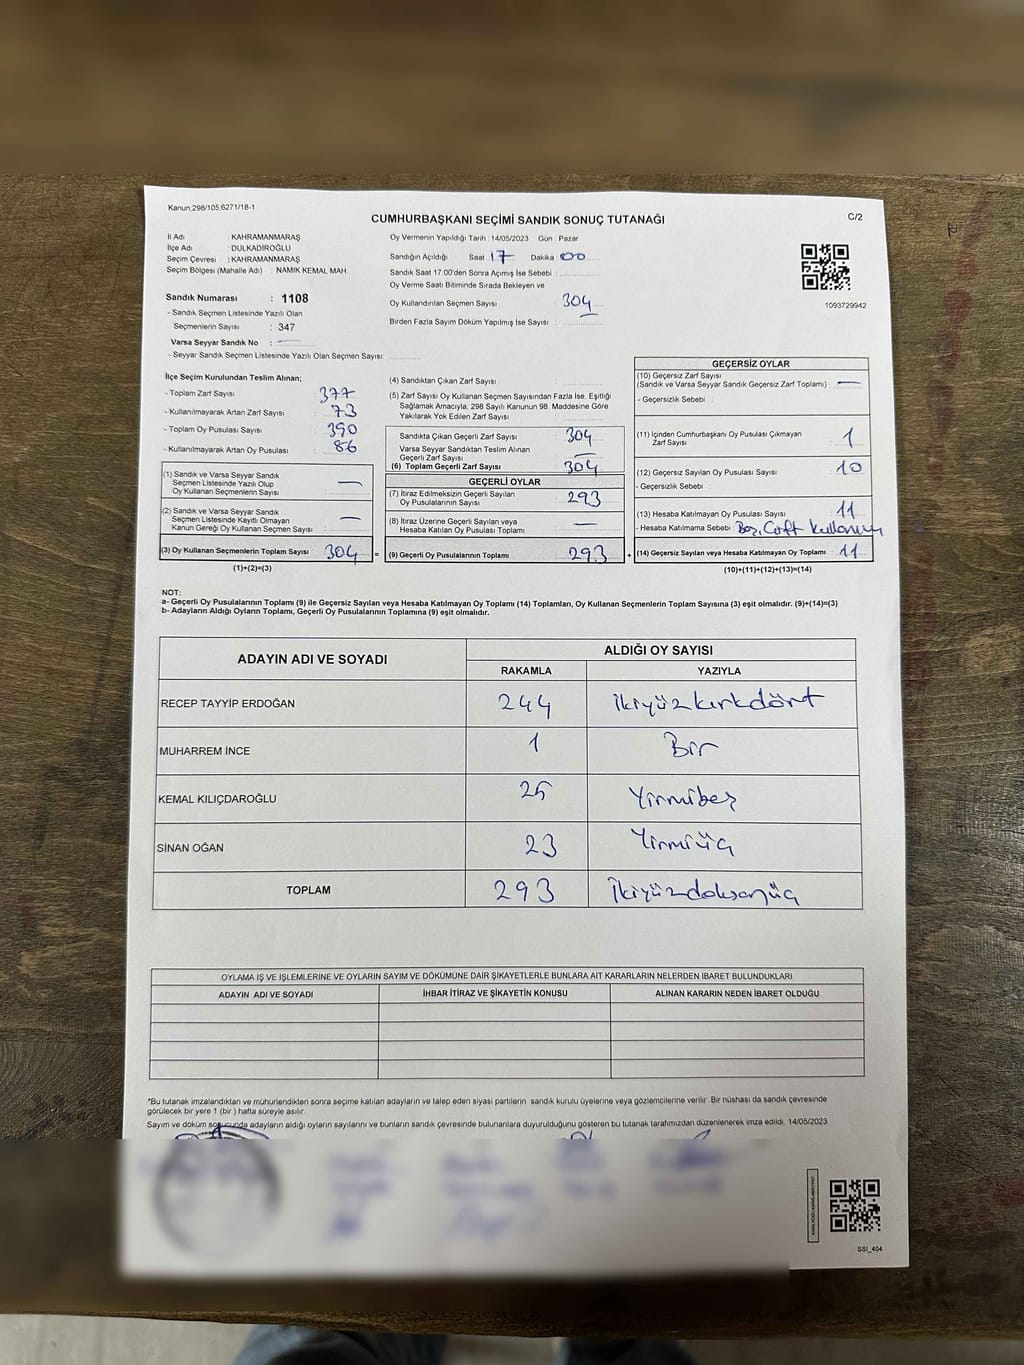 Kanun 298/105,6271/18-1
CUMHURBAŞKANI SEÇİMİ SANDIK SONUÇ TUTANAĞI
C/2
İl Adı : KAHRAMANMARAŞ
İlçe Adı : DULKADİROĞLU
Seçim Çevresi : KAHRAMANMARAŞ
Seçim Bölgesi (Mahalle Adı) : NAMIK KEMAL MAH.
Sandık Numarası : 1108
- Sandık Seçmen Listesinde Yazılı Olan
Seçmenlerin Sayısı : 347
Varsa Seyyar Sandık No : —
- Seyyar Sandık Seçmen Listesinde Yazılı Olan Seçmen Sayısı:
Oy Vermenin Yapıldığı Tarih : 14/05/2023 Gün : Pazar
Sandığın Açıldığı Saat 17 Dakika 00
Sandık Saat 17:00'den Sonra Açımış İse Sebebi :
Oy Verme Saati Bitiminde Sırada Bekleyen ve
Oy Kullandırılan Seçmen Sayısı : 304
Birden Fazla Sayım Döküm Yapılmış İse Sayısı : —
1093729942
İlçe Seçim Kurulundan Teslim Alınan;
- Toplam Zarf Sayısı : 377
- Kullanılmayarak Artan Zarf Sayısı : 73
- Toplam Oy Pusulası Sayısı : 390
- Kullanılmayarak Artan Oy Pusulası : 86
(1) Sandık ve Varsa Seyyar Sandık
Seçmen Listesinde Yazılı Olup
Oy Kullanan Seçmenlerin Sayısı : —
(2) Sandık ve Varsa Seyyar Sandık
Seçmen Listesinde Kayıtlı Olmayan
Kanun Gereği Oy Kullanan Seçmen Sayısı : —
(3) Oy Kullanan Seçmenlerin Toplam Sayısı 304 =
(1)+(2)=(3)
(4) Sandıktan Çıkan Zarf Sayısı :
(5) Zarf Sayısı Oy Kullanan Seçmen Sayısından Fazla İse, Eşitliği
Sağlamak Amacıyla, 298 Sayılı Kanunun 98. Maddesine Göre
Yakılarak Yok Edilen Zarf Sayısı :
Sandıkta Çıkan Geçerli Zarf Sayısı : 304
Varsa Seyyar Sandıktan Teslim Alınan
Geçerli Zarf Sayısı : —
(6) Toplam Geçerli Zarf Sayısı : 304
GEÇERLİ OYLAR
(7) İtiraz Edilmeksizin Geçerli Sayılan
Oy Pusulalarının Sayısı : 293
(8) İtiraz Üzerine Geçerli Sayılan veya
Hesaba Katılan Oy Pusulası Sayısı : —
(9) Geçerli Oy Pusulalarının Toplamı : 293 +
GEÇERSİZ OYLAR
(10) Geçersiz Zarf Sayısı
(Sandık ve Varsa Seyyar Sandık Geçersiz Zarf Toplamı) : —
- Geçersizlik Sebebi :
(11) İçinden Cumhurbaşkanı Oy Pusulası Çıkmayan
Zarf Sayısı : 1
(12) Geçersiz Sayılan Oy Pusulası Sayısı : 10
- Geçersizlik Sebebi :
(13) Hesaba Katılmayan Oy Pusulası Sayısı : 11
- Hesaba Katılmama Sebebi : Boş, Çift Kullanım
(14) Geçersiz Sayılan veya Hesaba Katılmayan Oy Toplamı : 11
(10)+(11)+(12)+(13)=(14)
NOT:
a- Geçerli Oy Pusulalarının Toplamı (9) ile Geçersiz Sayılan veya Hesaba Katılmayan Oy Toplamı (14) Toplamları, Oy Kullanan Seçmenlerin Toplam Sayısına (3) eşit olmalıdır. (9)+(14)=(3)
b- Adayların Aldığı Oyların Toplamı, Geçerli Oy Pusulalarının Toplamına (9) eşit olmalıdır.
ADAYIN ADI VE SOYADI ALDIĞI OY SAYISI
RAKAMLA YAZIYLA
RECEP TAYYİP ERDOĞAN 244 ikiyüzkırkdört
MUHARREM İNCE 1 Bir
KEMAL KILIÇDAROĞLU 25 Yirmibeş
SİNAN OĞAN 23 Yirmiüç
TOPLAM 293 ikiyüzdoksanüç
OYLAMA İŞ VE İŞLEMLERİNE VE OYLARIN SAYIM VE DÖKÜMÜNE DAİR ŞİKAYETLERLE BUNLARA AİT KARARLARIN NELERDEN İBARET BULUNDUKLARI
ADAYIN ADI VE SOYADI İHBAR İTİRAZ VE ŞİKAYETİN KONUSU ALINAN KARARIN NEDEN İBARET OLDUĞU
*Bu tutanak imzalandıktan ve mühürlendikten sonra seçime katılan adayların ve talep eden siyasi partilerin sandık kurulu üyelerine veya gözlemcilerine verilir. Bir nüshası da sandık çevresinde
görülecek bir yere 1 (bir) hafta süreyle asılır.
Sayım ve döküm sonucunda adayların aldığı oyların sayılarını ve bunların sandık çevresinde bulunanlara duyurulduğunu gösteren bu tutanak tarafımızdan düzenlenerek imza edildi. 14/05/2023
SSI_404